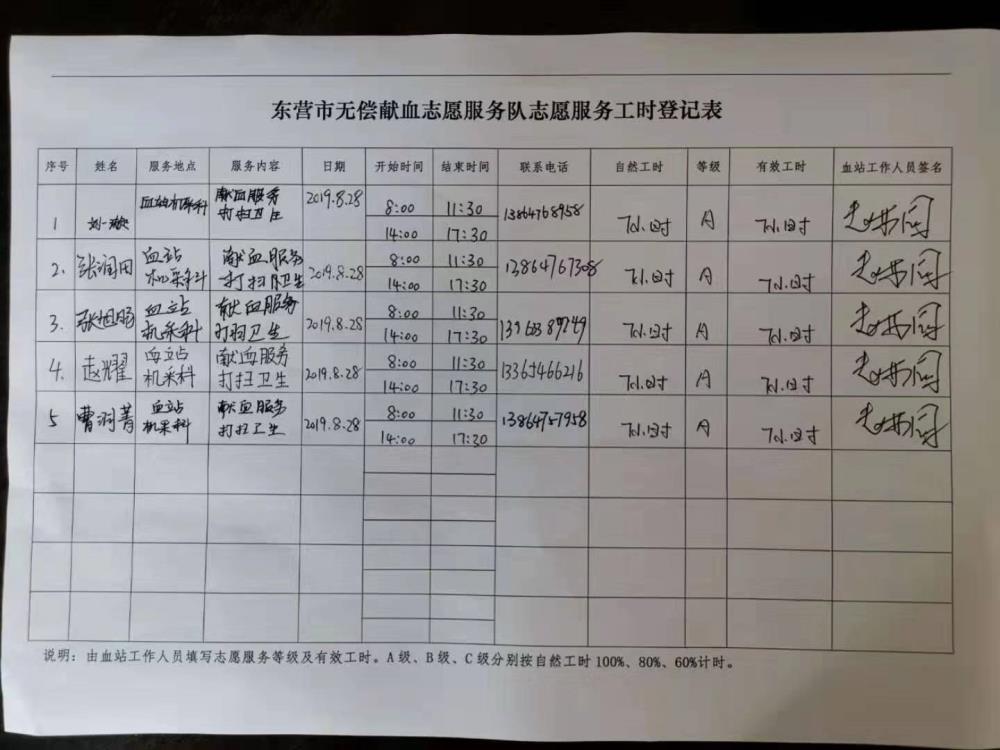 东营市无偿献血志愿服务队志愿服务工时登记表
序号 姓名 服务地点 服务内容 日期 开始时间 结束时间 联系电话 自然工时 等级 有效工时 血站工作人员签名
1 刘一璇 血站机采科 献血服务 打扫卫生 2019.8.28 8:00 11:30 13864768958 7小时 A 7小时
14:00 17:30
2. 张润田 血站 机采科 献血服务 打扫卫生 2019.8.28 8:00 11:30 13864767308 7小时 A 7小时
14:00 17:30
3. 张旭 血站 机采科 献血服务 打扫卫生 2019.8.28 8:00 11:30 7小时 A 7小时
14:00 17:30
4. 赵耀 血站 机采科 献血服务 打扫卫生 2019.8.28 8:00 11:30 13365466216 7小时 A 7小时
14:00 17:30
5 曹羽菁 血站 机采科 献血服务 打扫卫生 2019.8.28 8:00 11:30 13864757958 7小时 A 7小时
14:00 17:30
说明：由血站工作人员填写志愿服务等级及有效工时。A级、B级、C级分别按自然工时100%、80%、60%计时。